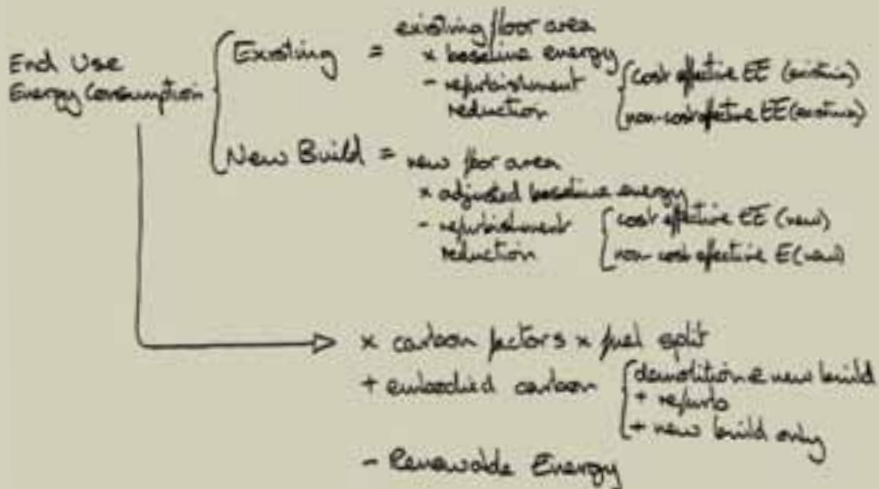 End Use
Energy Consumption
Existing = existing floor area
× baseline energy
- refurbishment
reduction
cost effective EE (existing)
non-cost effective EE (existing)
New Build = new floor area
× adjusted baseline energy
- refurbishment
reduction
cost effective EE (new)
non-cost effective E (new)
× carbon factors × fuel split
+ embodied carbon
demolition & new build
+ refurb
+ new build only
- Renewable Energy